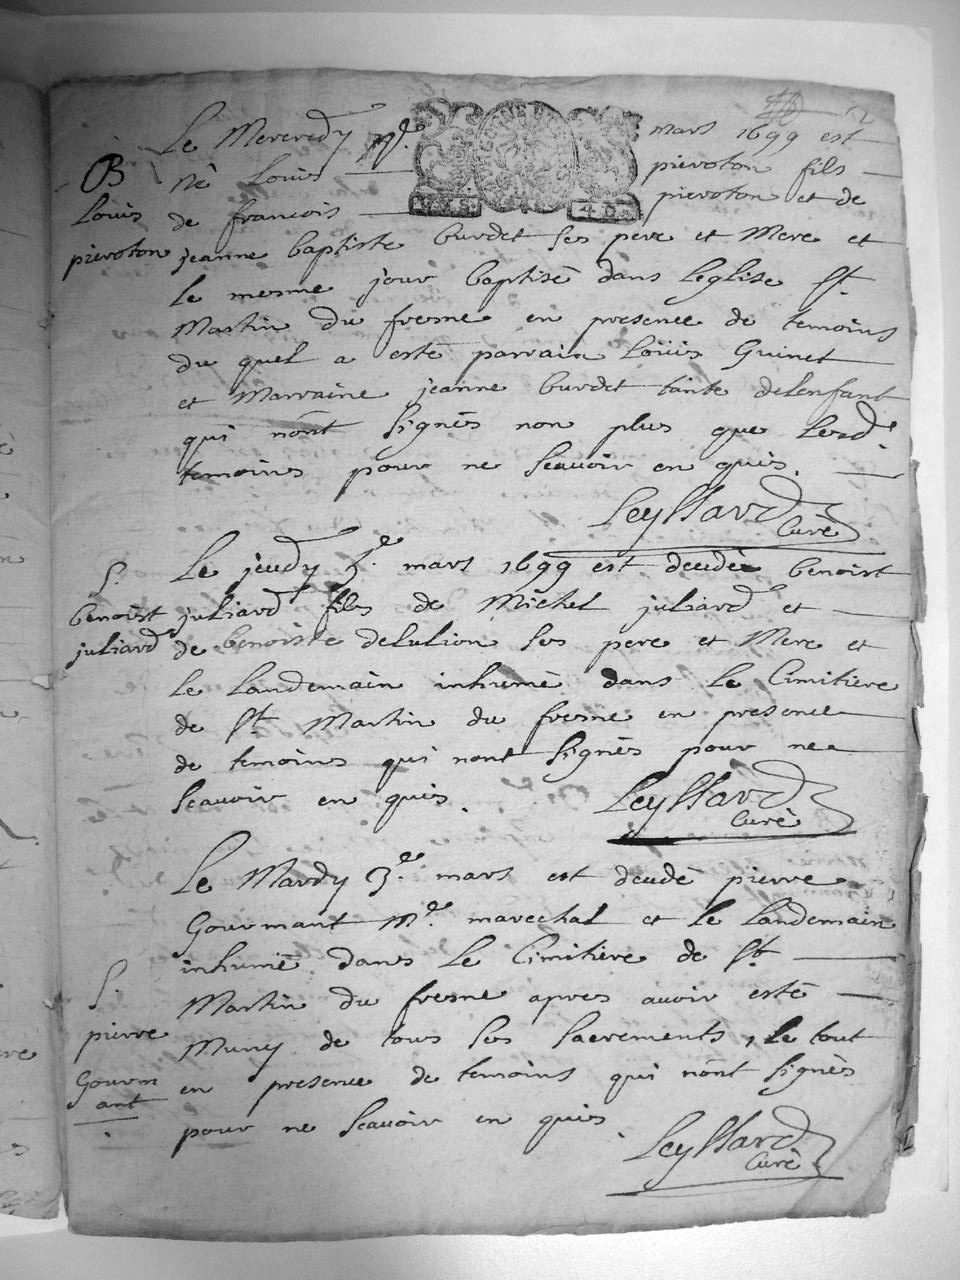 Le Mercredy 4e. mars 1699 est
B né Louis pievoton fils
Louis de francois pievoton et de
pievoton jeanne baptiste burdet ses pere et Mere et
le mesme jour baptisé dans leglise st.
Martin du fresne en presence de temoins
du quel a esté parrain Loüis Guinet
et Marraine jeanne burdet tante delenfant
qui nont signés non plus que lesd.
temoins pour ne scavoir en quis.
Leyssard
Curé
Le jeudy 5e. mars 1699 est decedé benoist
S.
benoist juliard fils de Michel juliard et
juliard de benoiste delulion ses pere et Mere et
le landemain inhumé dans le Cimitiere
de st Martin du fresne en presence
de temoins qui nont signés pour ne
scavoir en quis.
Leyssard
Curé
Le Mardy 3e. mars est decedé pierre
Gourmant me. marechal et le landemain
inhumé dans le Cimitiere de st
S.
Martin du fresne apres avoir esté
pierre Muny de tous ses sacrements, le tout
Gourm en presence de temoins qui nont signés
ant
pour ne scavoir en quis.
Leyssard
Curé